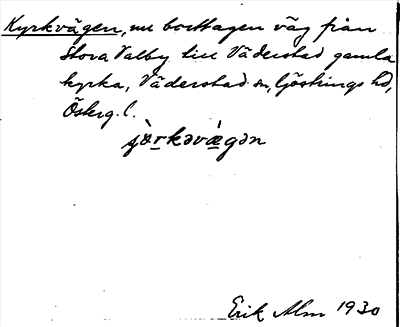 Kyrkvägen, nu borttagen väg från
Stora Valby till Väderstad gamla
kyrka, Väderstad sn, Göstrings hd,
Österg. l.
Erik Alm 1930